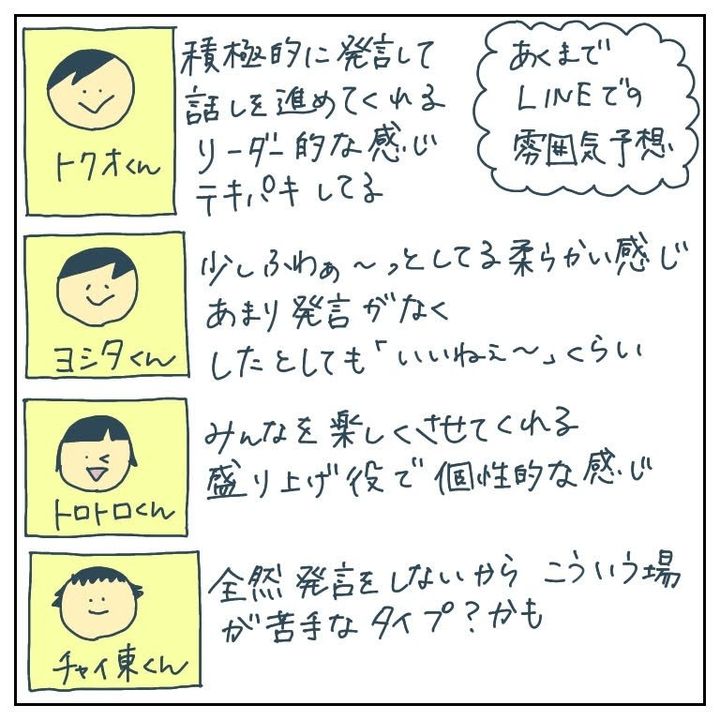 積極的に発言して
話しを進めてくれる
リーダー的な感じ
テキパキしてる
トクオくん
あくまで
LINEでの
雰囲気予想
少しふわぁ〜っとしてる柔らかい感じ
あまり発言がなく
したとしても「いいねぇ〜」くらい
ヨシタくん
みんなを楽しくさせてくれる
盛り上げ役で個性的な感じ
トロトロくん
全然発言をしないから こういう場
が苦手なタイプ?かも
チャイ東くん